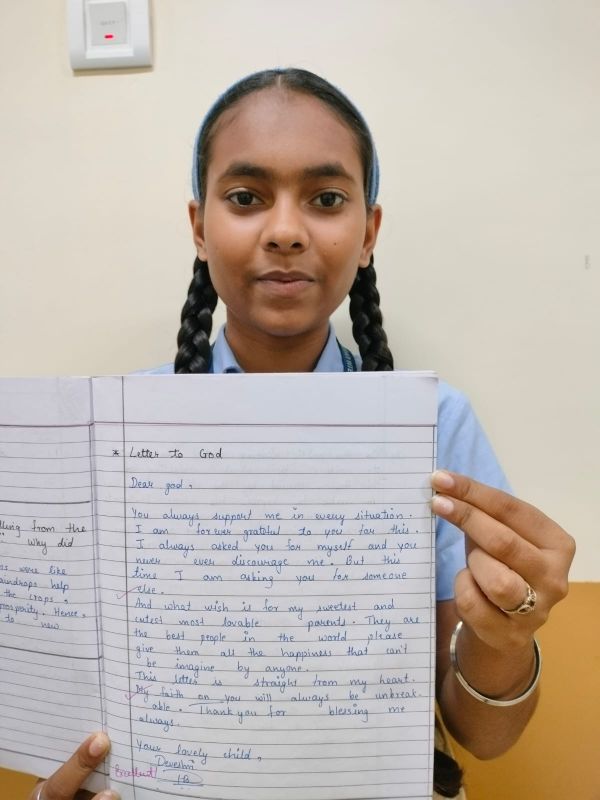 * Letter to God
Dear god,
You always support me in every situation.
I am forever grateful to you for this.
I always asked you for myself and you
never ever discourage me. But this
time I am asking you for someone
else.
And what wish is for my sweetest and
cutest most lovable parents. They are
the best people in the world please
give them all the happiness that can't
be imagine by anyone.
This letter is straight from my heart.
My faith on you will always be unbreak-
able. Thank you for blessing me
always.
Your lovely child,
Excellent!
from the
why did
were like
aindrops help
the crops,
prosperity. Hence,
to new